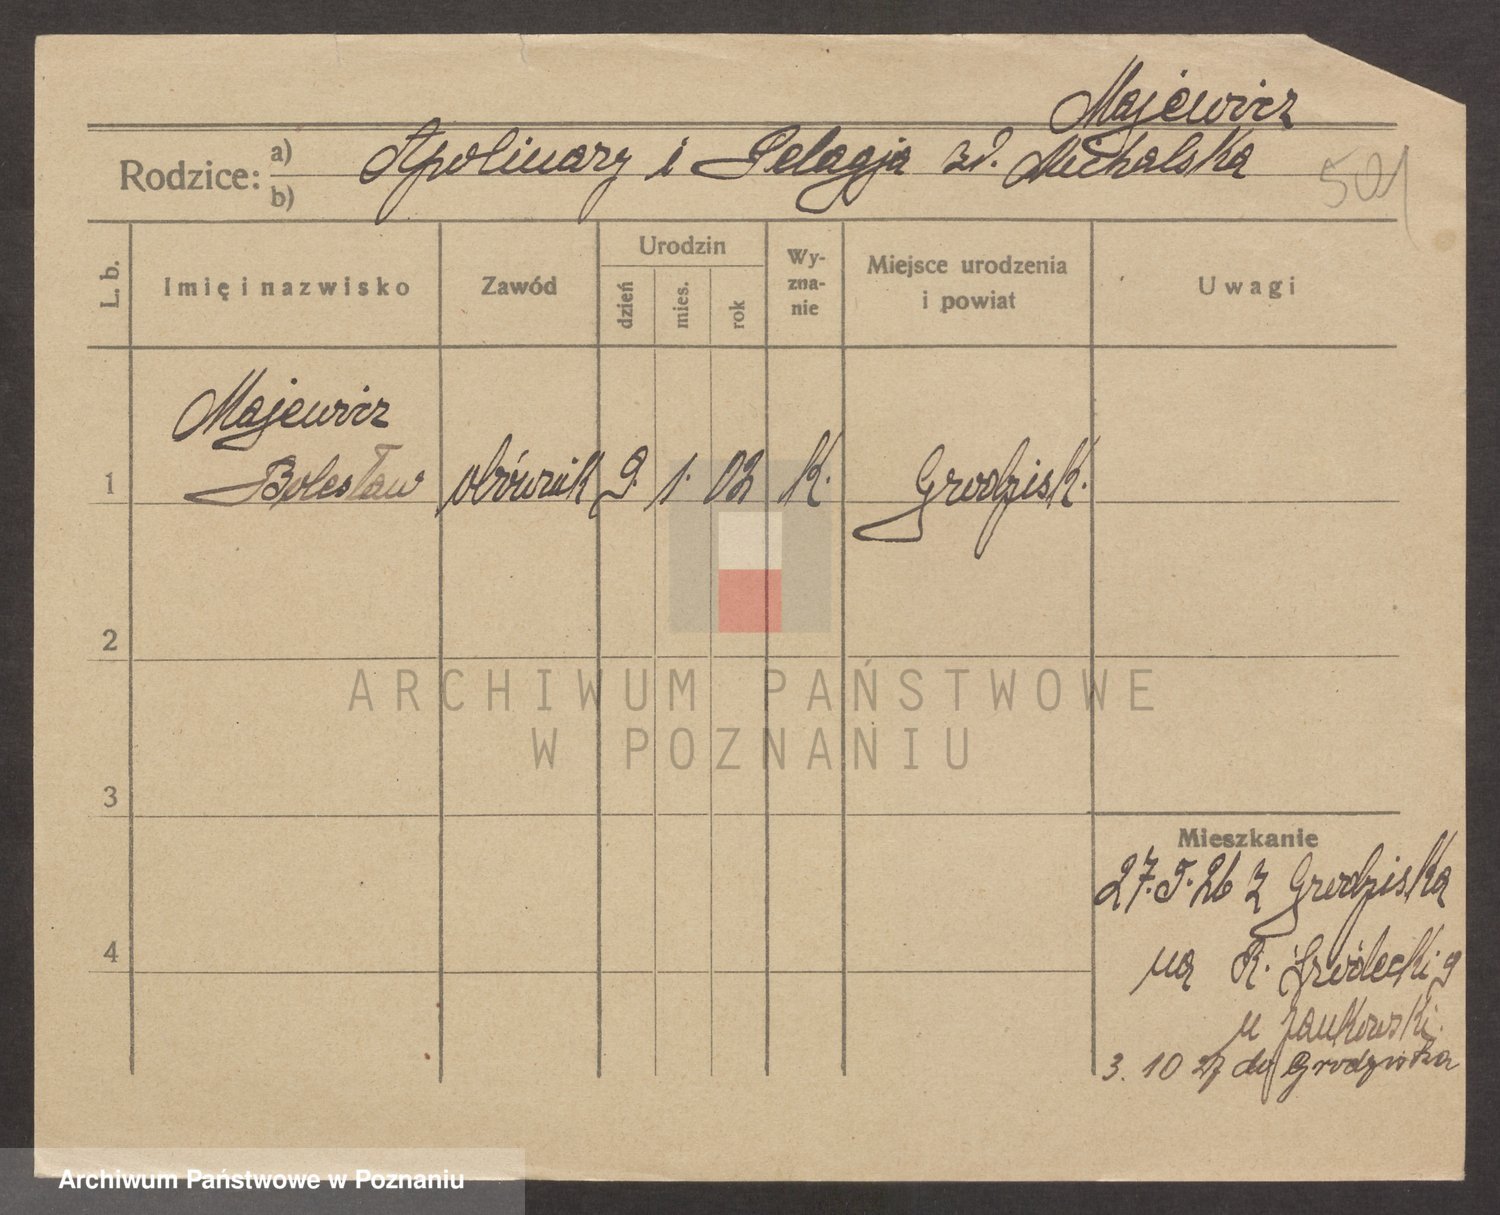 Majewicz
Rodzice: a) b) Apolinary i Pelagja zd. Michalska
501
L. b.
Imię i nazwisko
Zawód
Urodzin
dzień
mies.
rok
Wy-
zna-
nie
Miejsce urodzenia
i powiat
Uwagi
Majewicz
1 Bolesław obównik 9. 1. 02 K. Grodzisk.
2
3
4
Mieszkanie
27.5.26 z Grodziska
na R. Śródecki 9
u Jankowski.
3. 10 27 do Grodziska
ARCHIWUM PAŃSTWOWE
W POZNANIU
Archiwum Państwowe w Poznaniu